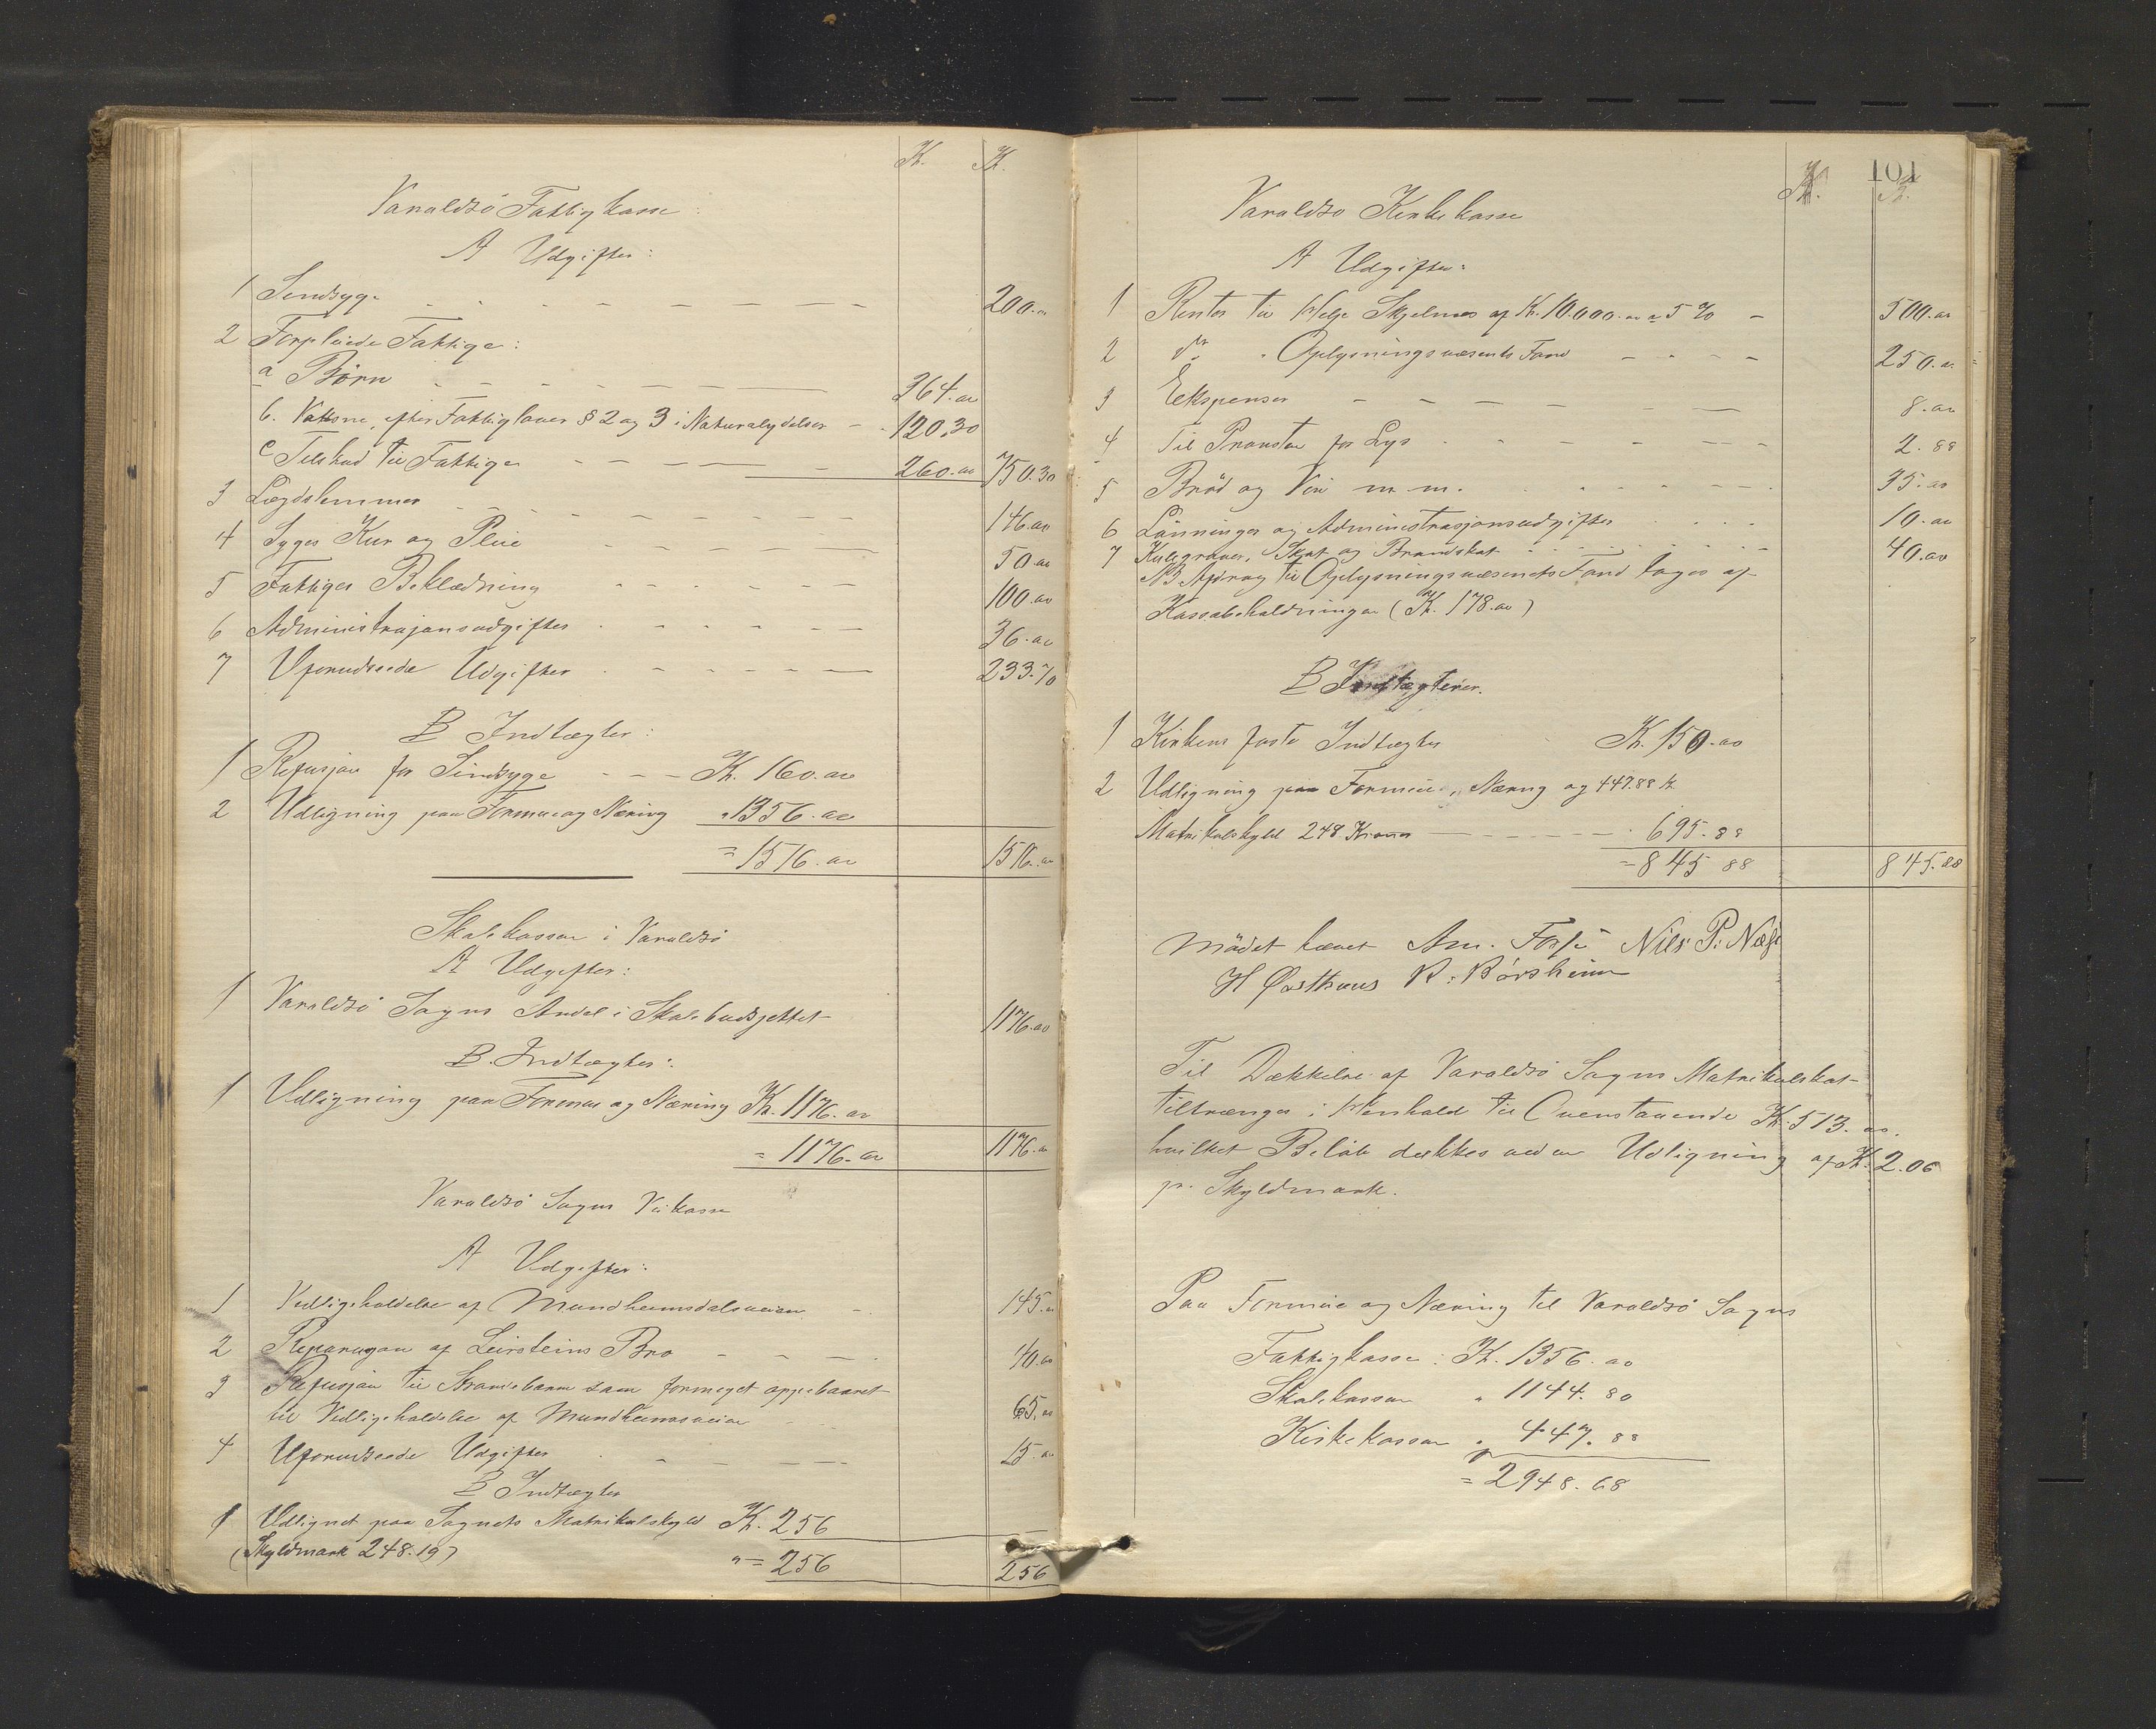 Kr. Kr.
Varaldsö Fattigkasse:
A Udgifter:
1 Sindsyge 200.00
2 Forpleiede Fattige:
a Börn 364.00
b. Voksne, efter Fattiglovens § 2 og 3 i Naturalydelser 120.30
c Tilskud til Fattige 260.00 750.30
3 Lægdslemmer 146.00
4 Syges Kur og Pleie 50.00
5 Fattiges Beklædning 100.00
6 Administrasjonsudgifter 36.00
7 Uforudseede Udgifter 233.70
B Indtægter:
1 Refusjon for Sindsyge Kr. 160.00
2 Udligning paa Formue og Næring " 1356.00
= 1516.00 1516.00
Skolekassen i Varaldsö
A Udgifter:
1 Varaldsö Sogns Andel i Skolebudsjettet 1176.00
B. Indtægter:
1 Udligning paa Formue og Næring Kr. 1176.00
= 1176.00 1176.00
Varaldsö Sogns Veikasse
A Udgifter:
1 Vedligeholdelse af Mundheimsdalsveien 145.00
2 Reparasjon af Leirsteins Bro 40.00
3 Refusjon til Strandebarm som formeget oppebaaret
til Vedligeholdelse af Mundheimsveien 65.00
4 Uforudseede Udgifter 15.00
B Indtægter
1 Udlignet paa Sognets Matrikulskyld Kr. 256
(Skyldmark 248.19) " = 256 256
101
Kr. Kr.
Varaldsö Kirkekasse
A Udgifter:
1 Renter til Helge Skjelnes af Kr. 10.000.00 a 5 % 500.00
2 do " Oplysningsvæsenets Fond 250.00
3 Ekspenser 8.00
4 Til Provsten for Lys 2.88
5 Bröd og Vin m.m. 35.00
6 Lönninger og Administrasjonsudgifter 10.00
7 Kulegraver, Skat og Brandskat 40.00
NB Afdrag til Oplysningsvæsenets Fond tages af
Kassabeholdningen (Kr. 178.00)
B Indtægter.
1 Kirkens faste Indtægter Kr. 150.00
2 Udligning paa Formue, Næring og 447.88 kr
Matrikulskyld 248 Kroner " 695.88
= 845 88 845.88
Mödet hævet Am. Fosse Nils P. Næs
H Østhuus R. Börsheim
Til Dækkelse af Varaldsö Sogns Matrikulskat
tiltrænges i Henhold til Ovenstaaende Kr. 513.00.
hvilket Belöb dækkes ved en Udligning af Kr. 2.06
pr. Skyldmark.
Paa Formue og Næring til Varaldsö Sogns
Fattigkasse: Kr. 1356.00
Skolekassen " 1144.80
Kirkekassen " 447.88
= 2948.68